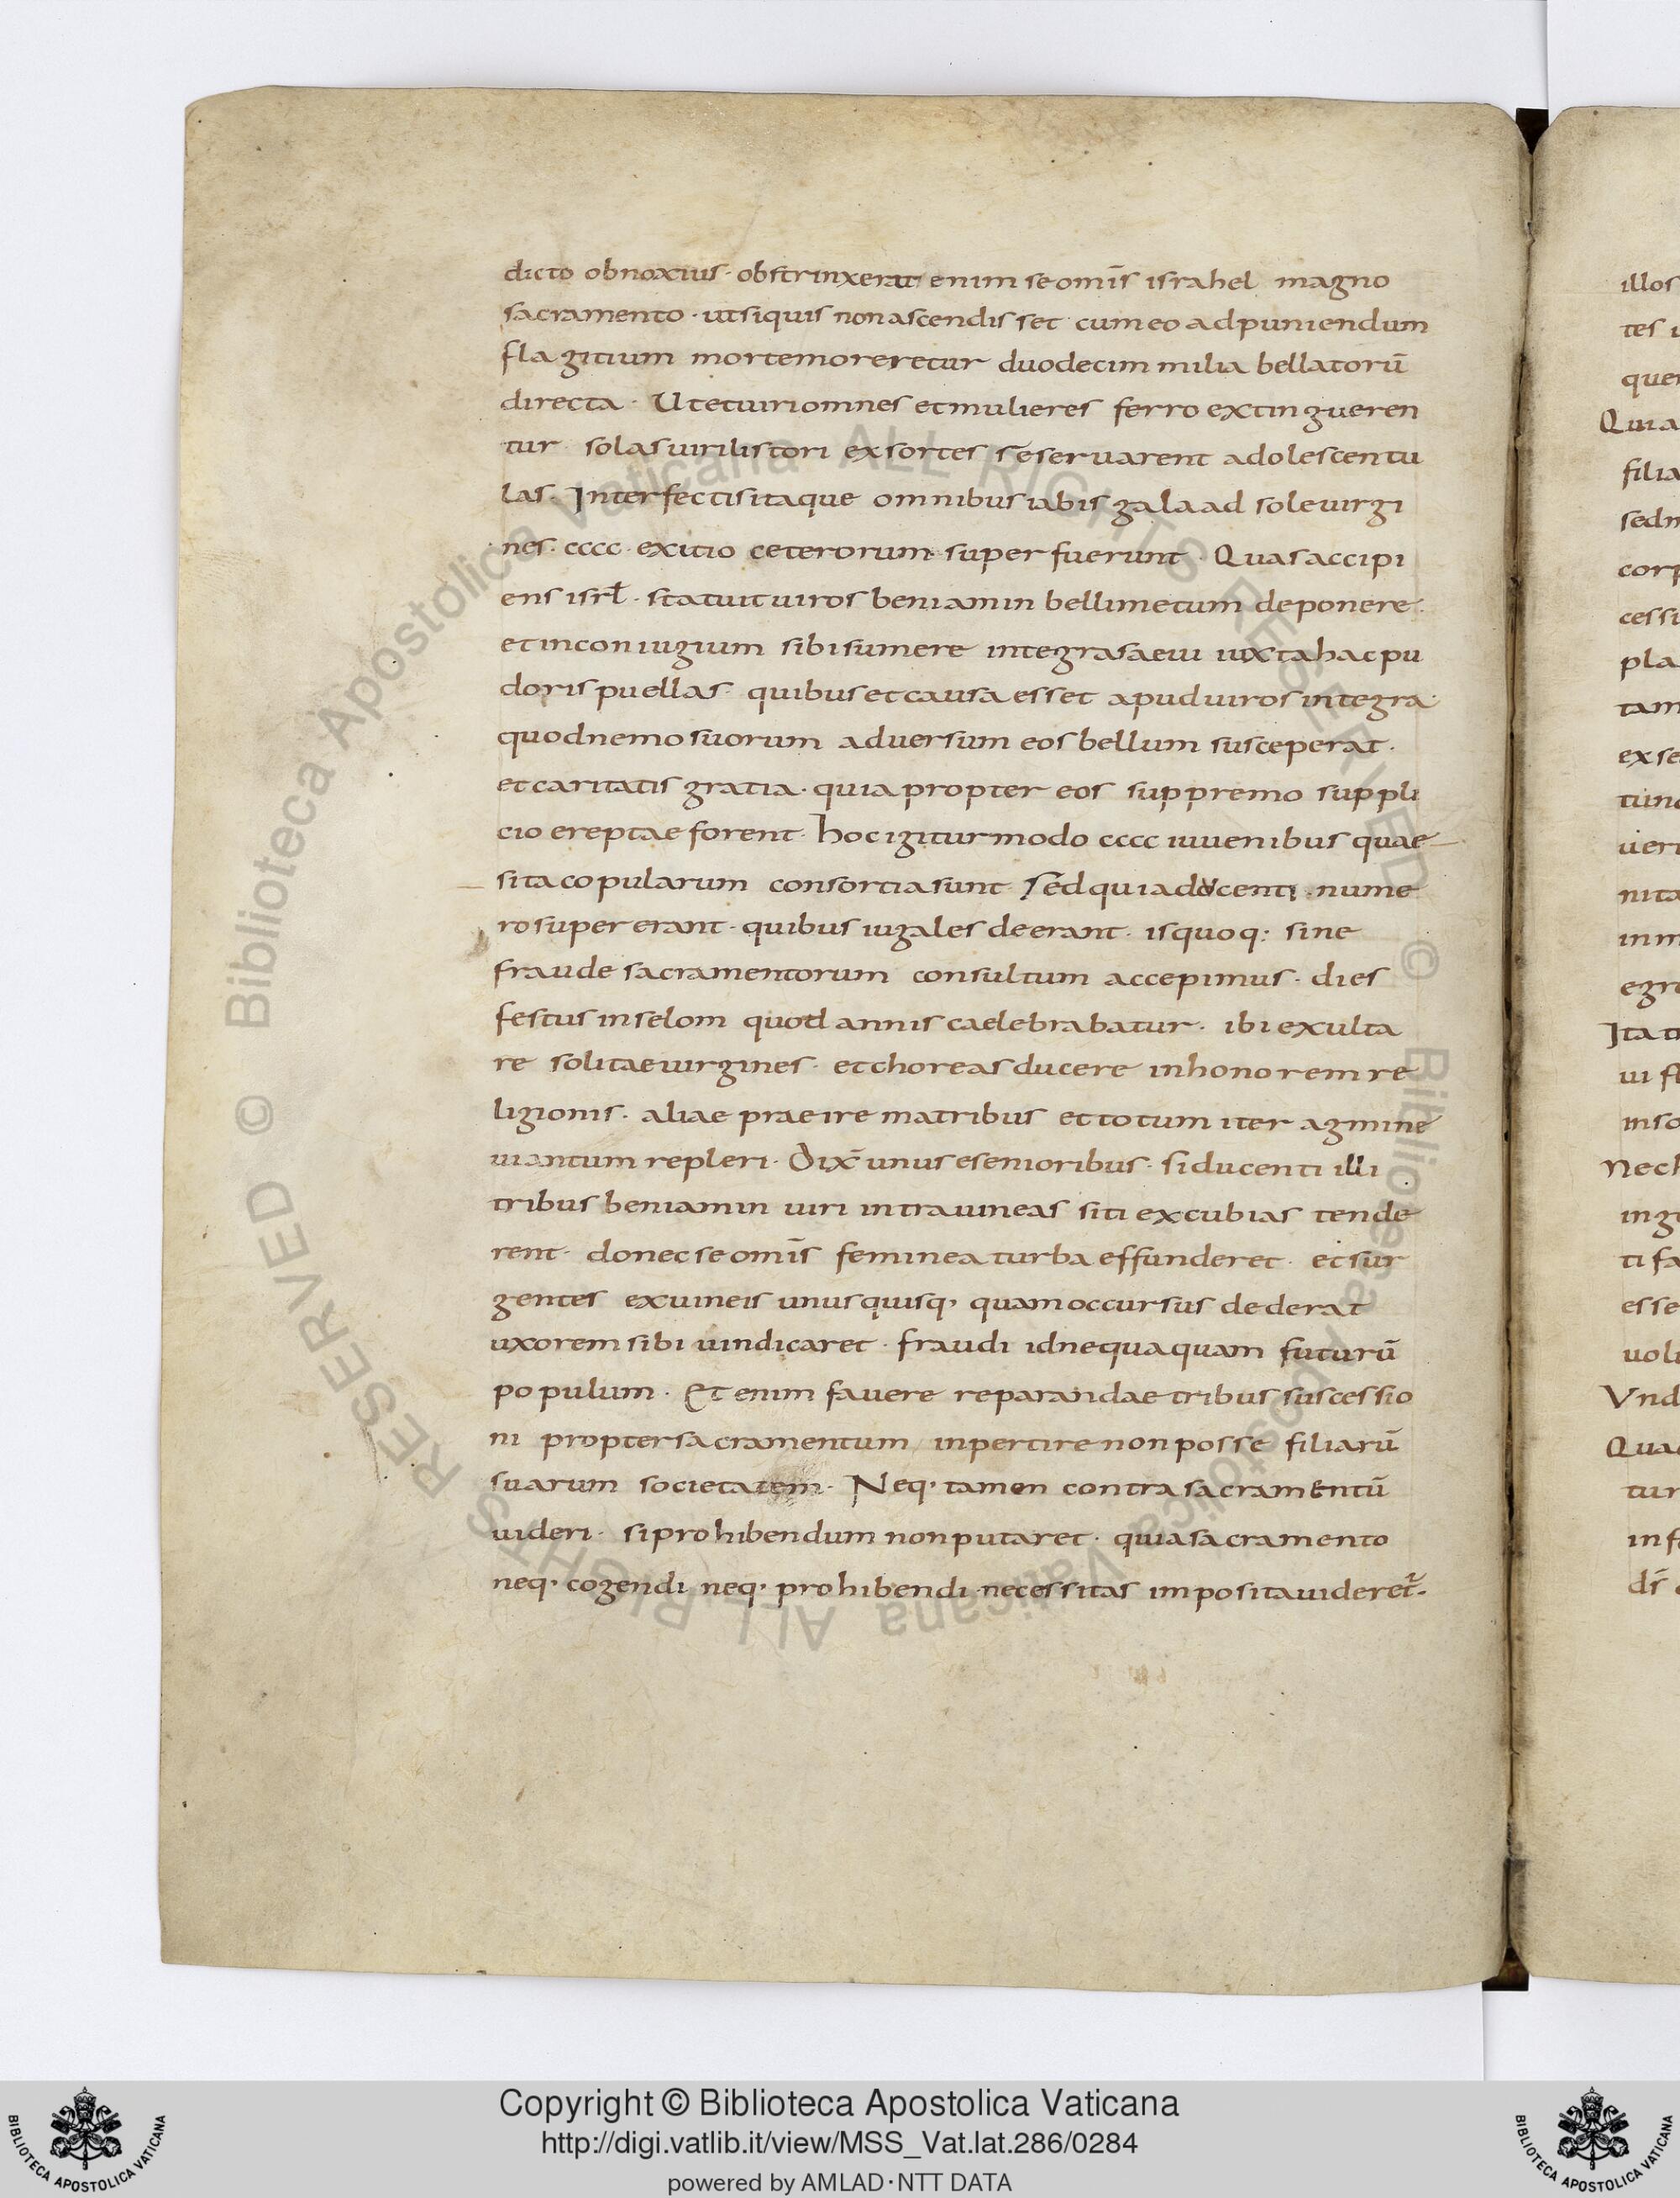 dicto obnoxius · obstrinxerat enim se omīs israhel magno
sacramento · ut siquis non ascendisset cum eo ad puniendum
flagitium morte moreretur duodecim milia bellatorū
directa · Ut et uiri omnes et mulieres ferro extingueren
tur solas uirilis tori exsortes seseruarent adolescentu
las · Interfectis itaque omnibus iabis galaad sole uirgi
nes · cccc · exitio ceterorum superfuerunt · Quas accipi
ens isrł · statuit uiros beniamin belli metum deponere ·
et in coniugium sibi sumere integras aeui iuxta hac pu
doris puellas · quibus et causa esset apud uiros integra ·
quod nemo suorum aduersum eos bellum susceperat ·
et caritatis gratia · quia propter eos suppremo suppli
cio ereptae forent · hoc igitur modo cccc iuuenibus quae
sita copularum consortia sunt · Sed quia ducenti · nume
ro supererant · quibus iugales deerant · is quoq: sine
fraude sacramentorum consultum accepimus · dies
festus in selom quod annis caelebrabatur · ibi exulta
re solitae uirgines · et choreas ducere in honorem re
ligionis · aliae praeire matribus et totum iter agmine
uiantum repleri · Dix̄ unus e senioribus · si ducenti illi
tribus beniamin uiri intra uineas siti excubias tende
rent · donec se omīs feminea turba effunderet · et sur
gentes ex uineis unusquisq, quam occursus dederat
uxorem sibi uindicaret · fraudi id nequaquam futurū
populum · Et enim fauere reparandae tribus suscessio
ni propter sacramentum inpertire non posse filiarū
suarum societatem · Neq, tamen contra sacramentū
uideri · si prohibendum non putaret · quia sacramento
neq, cogendi neq, prohibendi necessitas imposita uideret̄ ·
illos
tes
Quia
filia
cessi
pla
tam
nita
Nech
esse
Vnd
© Biblioteca Apostolica Vaticana ALL RIGHTS RESERVED © Biblioteca Apostolica Vaticana ALL RIGHTS RESERVED
Copyright © Biblioteca Apostolica Vaticana
http://digi.vatlib.it/view/MSS_Vat.lat.286/0284
powered by AMLAD·NTT DATA
BIBLIOTECA APOSTOLICA VATICANA
BIBLIOTECA APOSTOLICA VATICANA